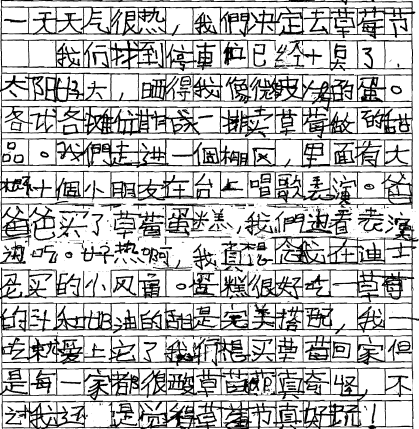 一天天气很热，我們决定去草莓节
我们找到停車位已经十点了，
太阳好大，晒得我像微波炉的蛋。
各各摊位一排卖草莓做的甜
品。我們走进一個棚区，里面有大
概十個小朋友在台上唱歌表演。爸
爸爸买了草莓蛋糕，我們边看表演
边吃。好热啊，我真想念我在迪士
尼买的小风扇。蛋糕很好吃，草莓
的汁和奶油的甜是完美搭配，我一
吃就爱上它了我们想买草莓回家但
是每一家都很酸草莓节真奇怪，不
过我还是觉得草莓节真好玩！